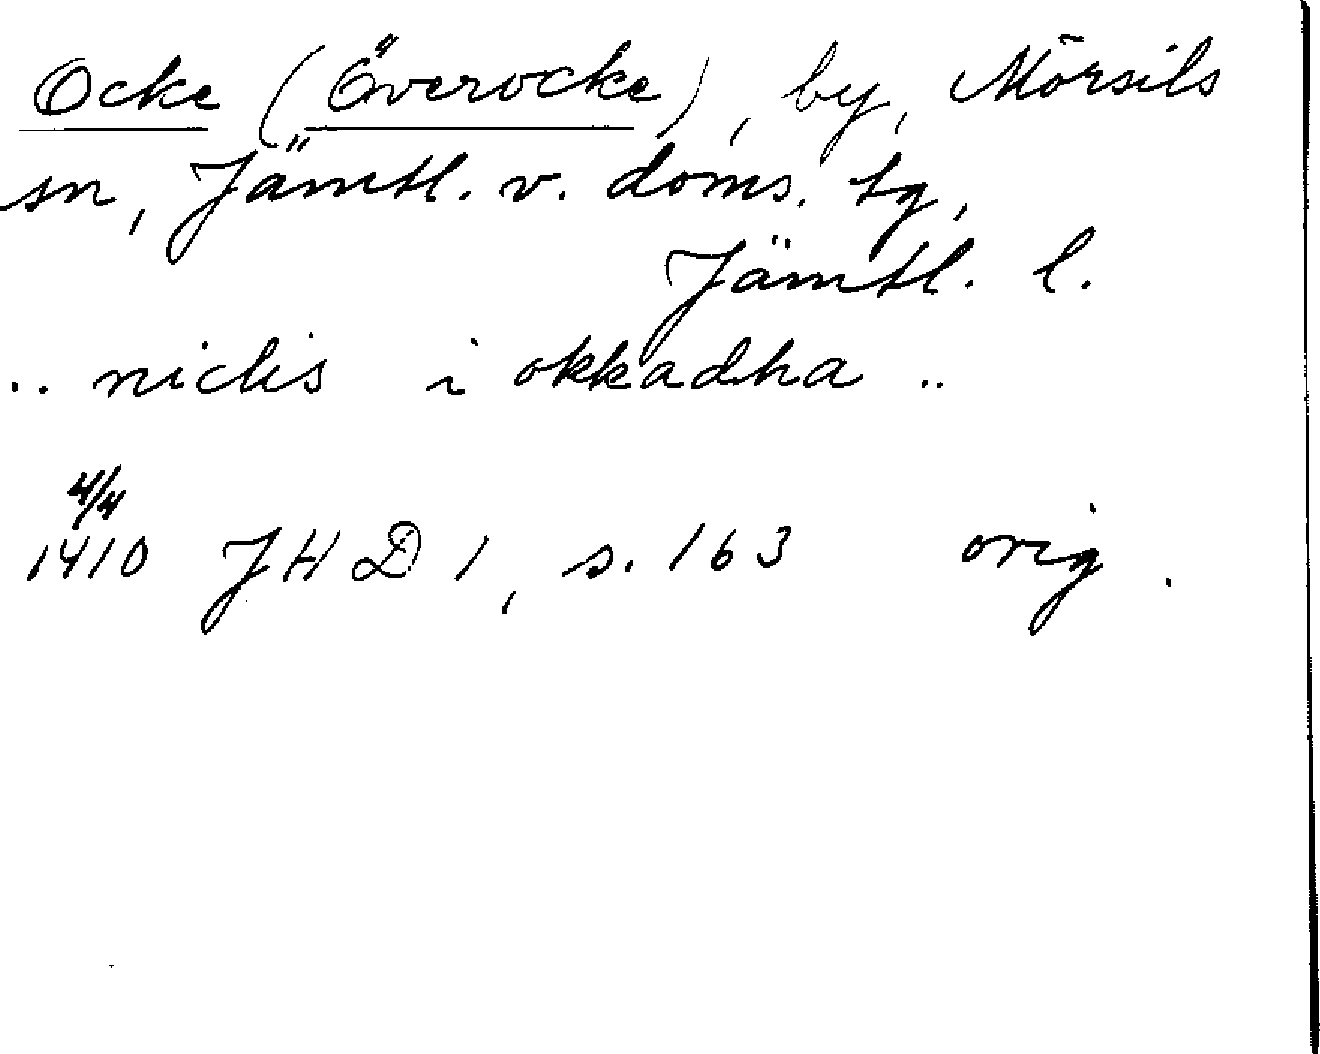 Ocke (Överocke), by, Mörsils
sn, Jämtl. v. doms. tg,
Jämtl. l.
.. niclis i okkadha ..
4/4
1410 JHD 1, s. 163 orig.